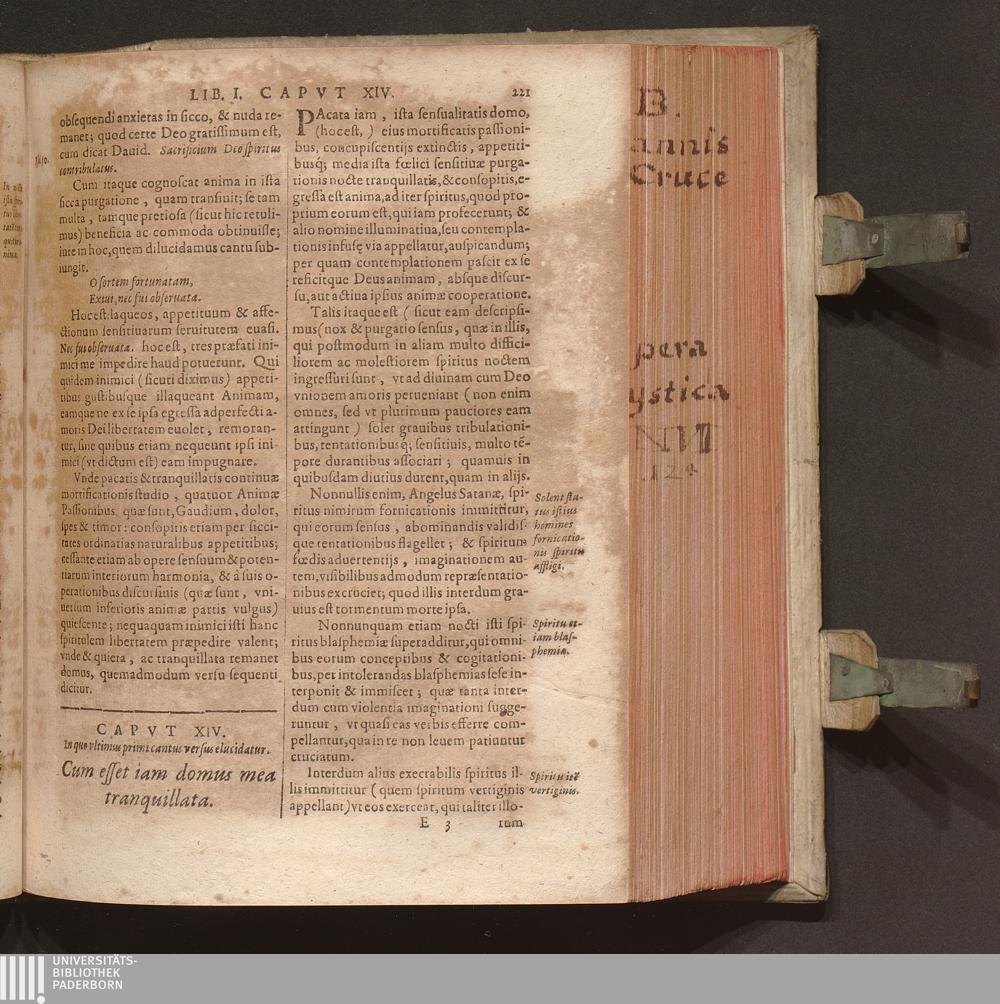 LIB. I. CAPVT XIV. 221
obsequendi anxietas in sicco, & nuda re-
manet; quod certe Deo gratissimum est,
cum dicat Dauid. Sacrificium Deo spiritus
contribulatus.
Cum itaque cognoscat anima in ista
sicca purgatione, quam transiuit; se tam
multa, tamque pretiosa (sicut hic retuli-
mus) beneficia ac commoda obtinuisse;
inre in hoc, quem dilucidamus cantu sub-
iungit.
O sortem fortunatam,
Exiui, nec fui obseruata.
Hoc est: laqueos, appetituum & affe-
ctionum sensitiuarum seruitutem euasi.
Nec fui obseruata. hoc est, tres præfati ini-
mici me impedire haud potuerunt. Qui
quidem inimici (sicuti diximus) appeti-
tibus gustibusque illaqueant Animam,
eamque ne ex se ipsa egressa ad perfecti a-
moris Dei libertatem euolet, remoran-
tur, sine quibus etiam nequeunt ipsi ini-
mici (vt dictum est) eam impugnare.
Vnde pacatis & tranquillatis continuæ
mortificationis studio, quatuor Animæ
Passionibus quæ sunt, Gaudium, dolor,
spes & timor: consopitis etiam per sicci-
tates ordinarias naturalibus appetitibus;
cessante etiam ab opere sensuum & poten-
tiarum interiorum harmonia, & à suis o-
perationibus discursiuis (quæ sunt, vni-
uersum inferioris animæ partis vulgus)
quiescente; nequaquam inimici isti hanc
spiritulem libertatem præpedire valent;
vnde & quieta, ac tranquillata remanet
domus, quemadmodum versu sequenti
dicitur.
CAPVT XIV.
In quo vltimus primi cantus versus elucidatur.
Cum esset iam domus mea
tranquillata.
PAcata iam, ista sensualitatis domo,
(hoc est,) eius mortificatis passioni-
bus, concupiscentijs extinctis, appetiti-
busq́; media ista fœlici sensitiuæ purga-
tionis nocte tranquillatis, & consopitis, e-
gressa est anima, ad iter spiritus, quod pro-
prium eorum est, qui iam profecerunt; &
alio nomine illuminatiua, seu contempla-
tionis infusę via appellatur, auspicandum;
per quam contemplationem pascit ex se
reficitque Deus animam, absque discur-
su, aut actiua ipsius animæ cooperatione.
Talis itaque est (sicut eam descripsi-
mus (nox & purgatio sensus, quæ in illis,
qui postmodum in aliam multo difficì-
liorem ac molestiorem spiritus noctem
ingressuri sunt, vt ad diuinam cum Deo
vnionem amoris perueniant (non enim
omnes, sed vt plurimum pauciores eam
attingunt) solet grauibus tribulationi-
bus, tentationibusq́; sensitiuis, multo tē-
pore durantibus associari; quamuis in
quibusdam diutius durent, quam in alijs.
Nonnullis enim, Angelus Satanæ, spi-
ritus nimirum fornicationis immittitur,
qui eorum sensus, abominandis validis-
que tentationibus flagellet; & spiritum
fœdis aduertentijs, imaginationem au-
tem, visibilibus admodum repræsentatio-
nibus excruciet; quod illis interdum gra-
uius est tormentum morte ipsa.
Nonnunquam etiam nocti isti spi-
ritus blasphemiæ superadditur, qui omni-
bus eorum conceptibus & cogitationi-
bus, per intolerandas blasphemias sese in-
terponit & immiscet; quæ tanta inter-
dum cum violentia imaginationi sugge-
runtur, vt quasi eas verbis efferre com-
pellantur, qua in re non leuem patiuntur
cruciatum.
Interdum alius execrabilis spiritus il-
lis immittitur (quem spiritum vertiginis
appellant) vt eos exerceat, qui taliter illo-
E 3 rum
Solent sta-
tus istius
homines
fornicatio-
nis spiritu
affligi.
Spiritu et-
iam blas-
phemiæ.
Spiritu itē
vertiginis.
B.
annis
Cruce
pera
ystica
UNIVERSITÄTS-
BIBLIOTHEK
PADERBORN